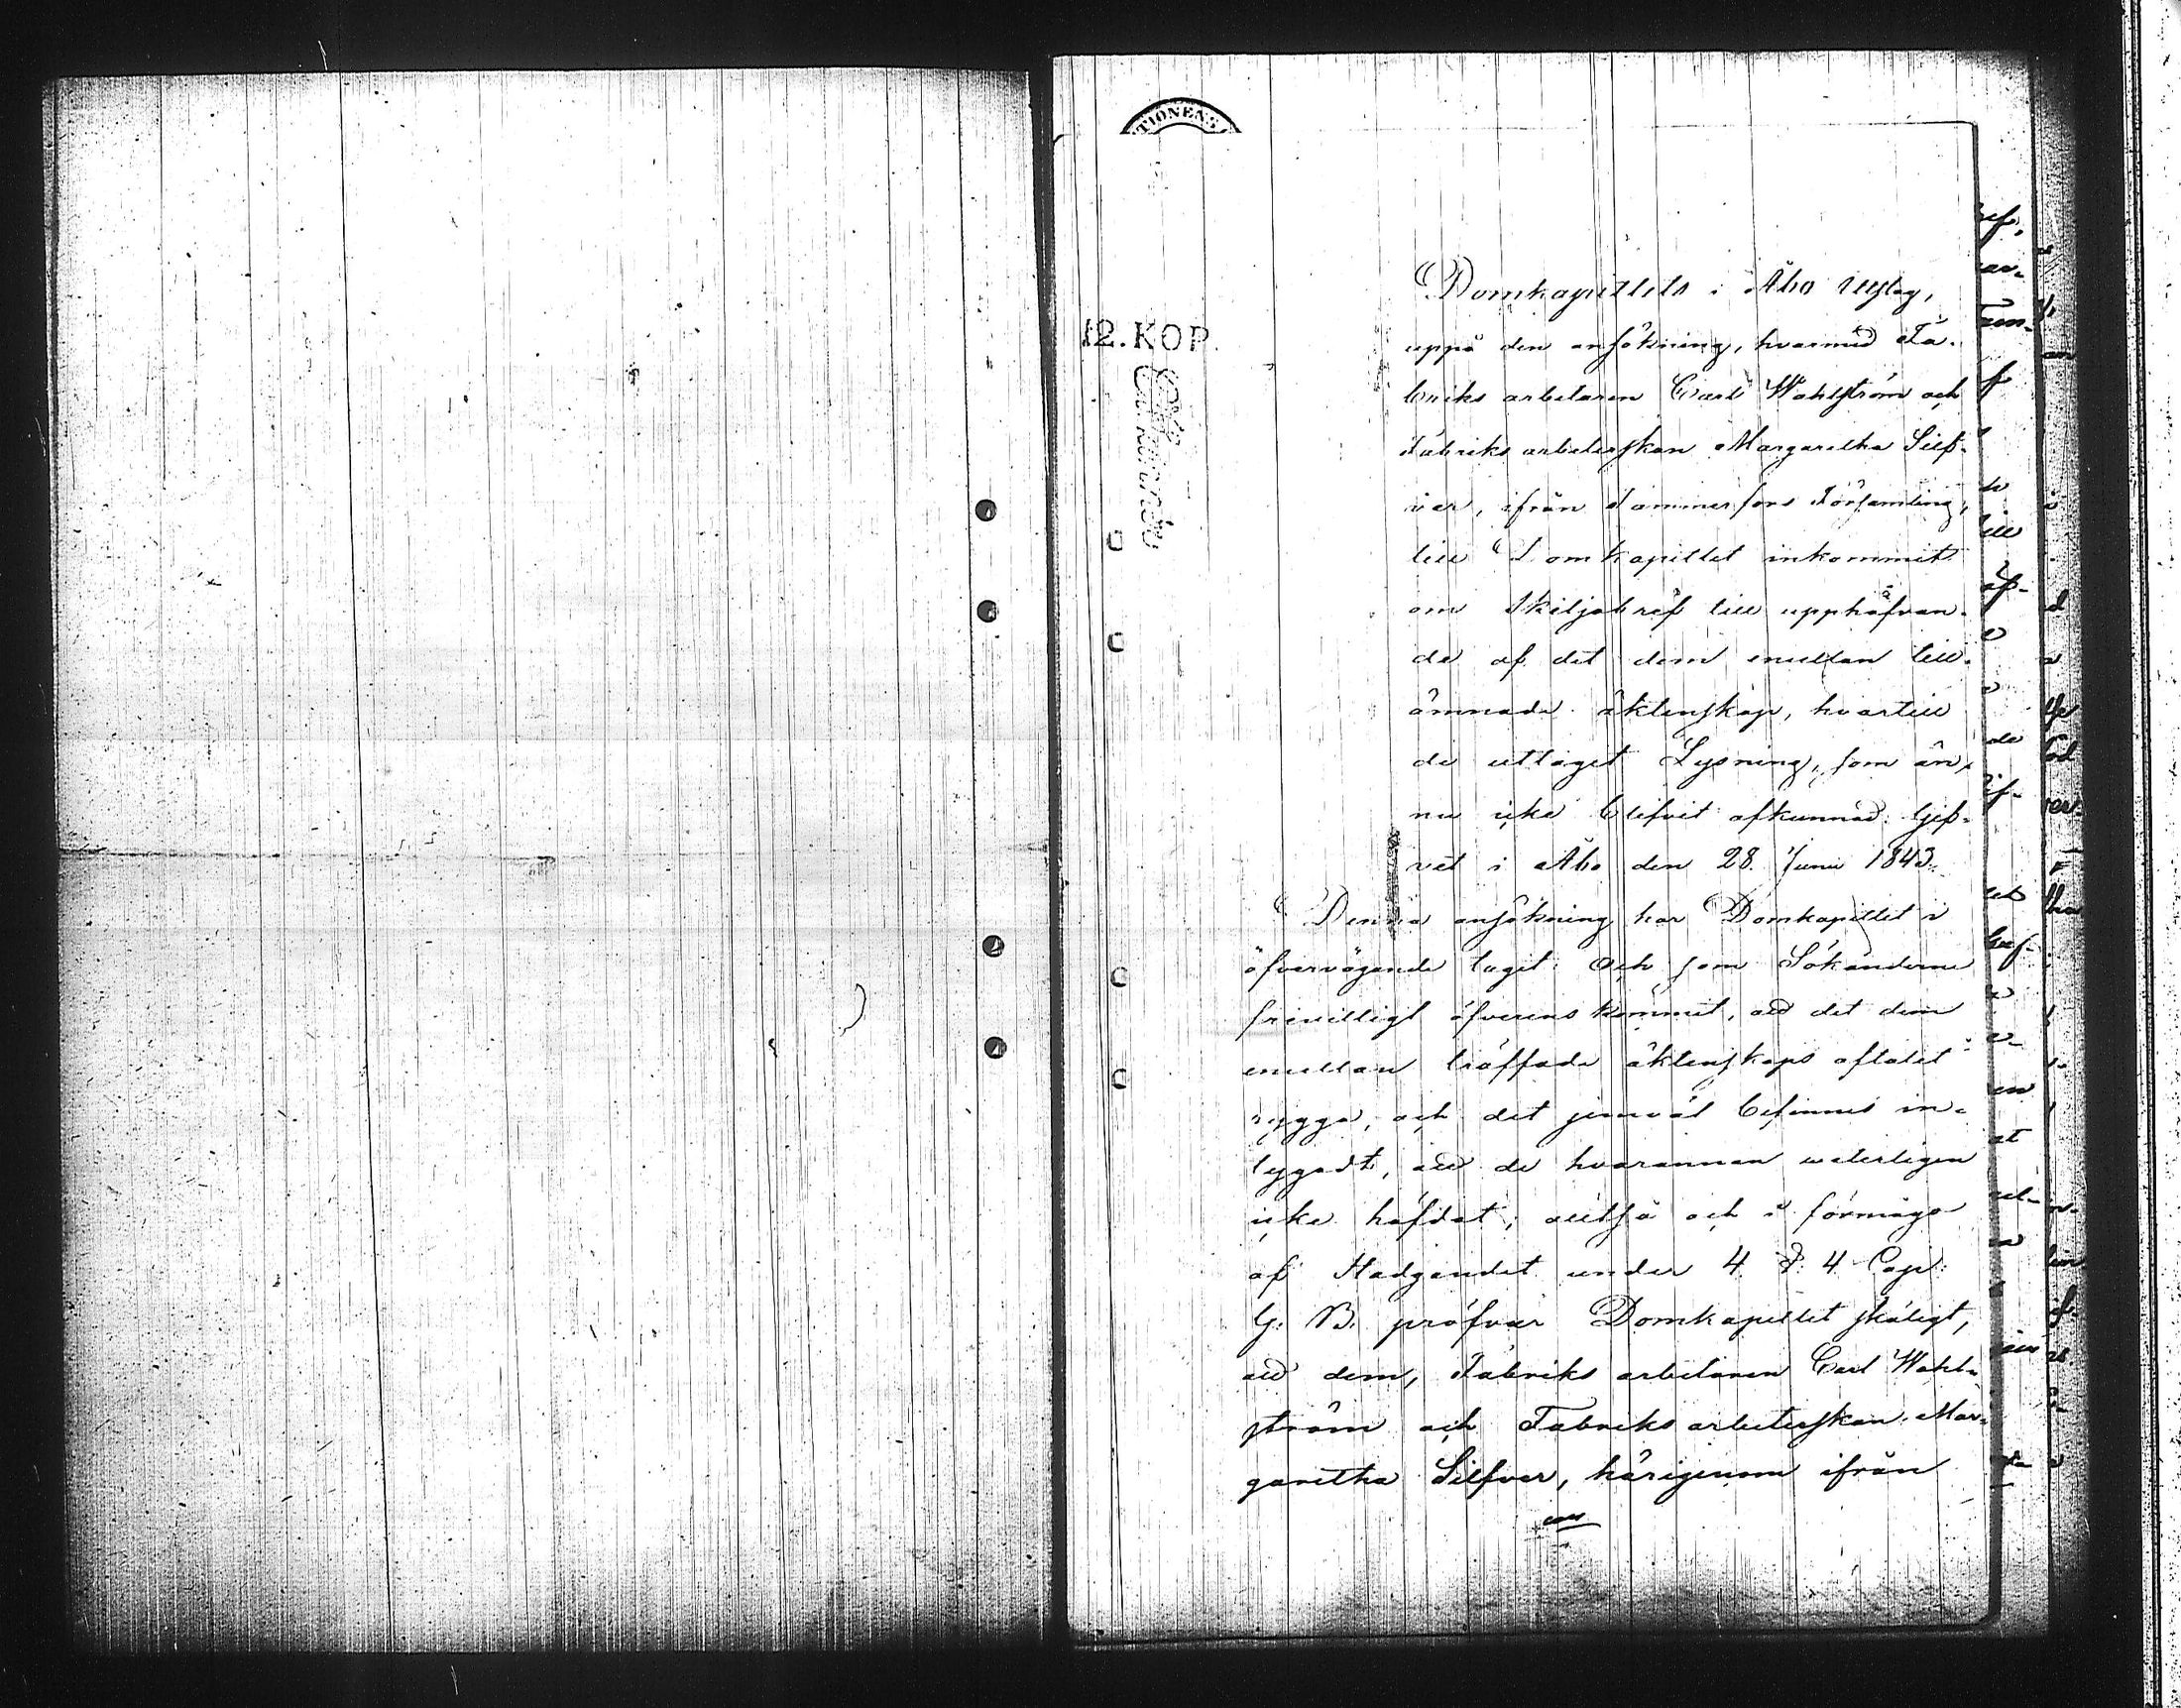 TIONENS
12. KOP.
Domkapitlets i Åbo Utslag,
uppå den ansökning, hvarmed Fa-
briks arbetaren Carl Wahlström och
Fabriks arbeterskan Margaretha Silf-
ver, ifrån Tammerfors Församling,
till Domkapitlet inkommit
om Skiljobref till upphäfvan-
de af det dem emellan till-
ämnade äktenskap, hvartill
de uttaget Lysning, som än-
nu icke blifvit afkunnad. Gif-
vet i Åbo den 28. Junii 1843.
Denna ansökning har Domkapitlet i
öfvervägande taget: Och som Sökanderne
frivilligt öfverenskommit, att det dem
emellan träffade äktenskaps aftalet
rygga, och det jemväl befinnes in-
tygadt, att de hvarannan waterligen
icke häfdat; alltså och i förmågo
af Stadgandet under 4 §. 4 Cap:
G. B. pröfvar Domkapitlet skäligt,
att dem, Fabriks arbetaren Carl Wahl-
ström och Fabriks arbeterskan Mar-
garetha Silfver, härigenom ifrån